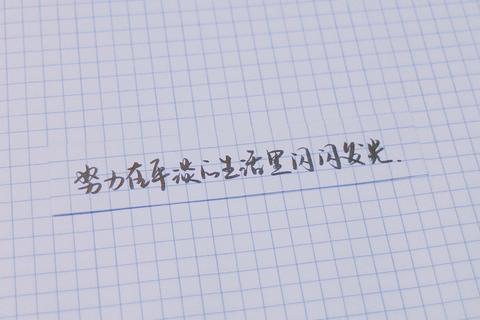 努力在平淡的生活里闪闪发光.